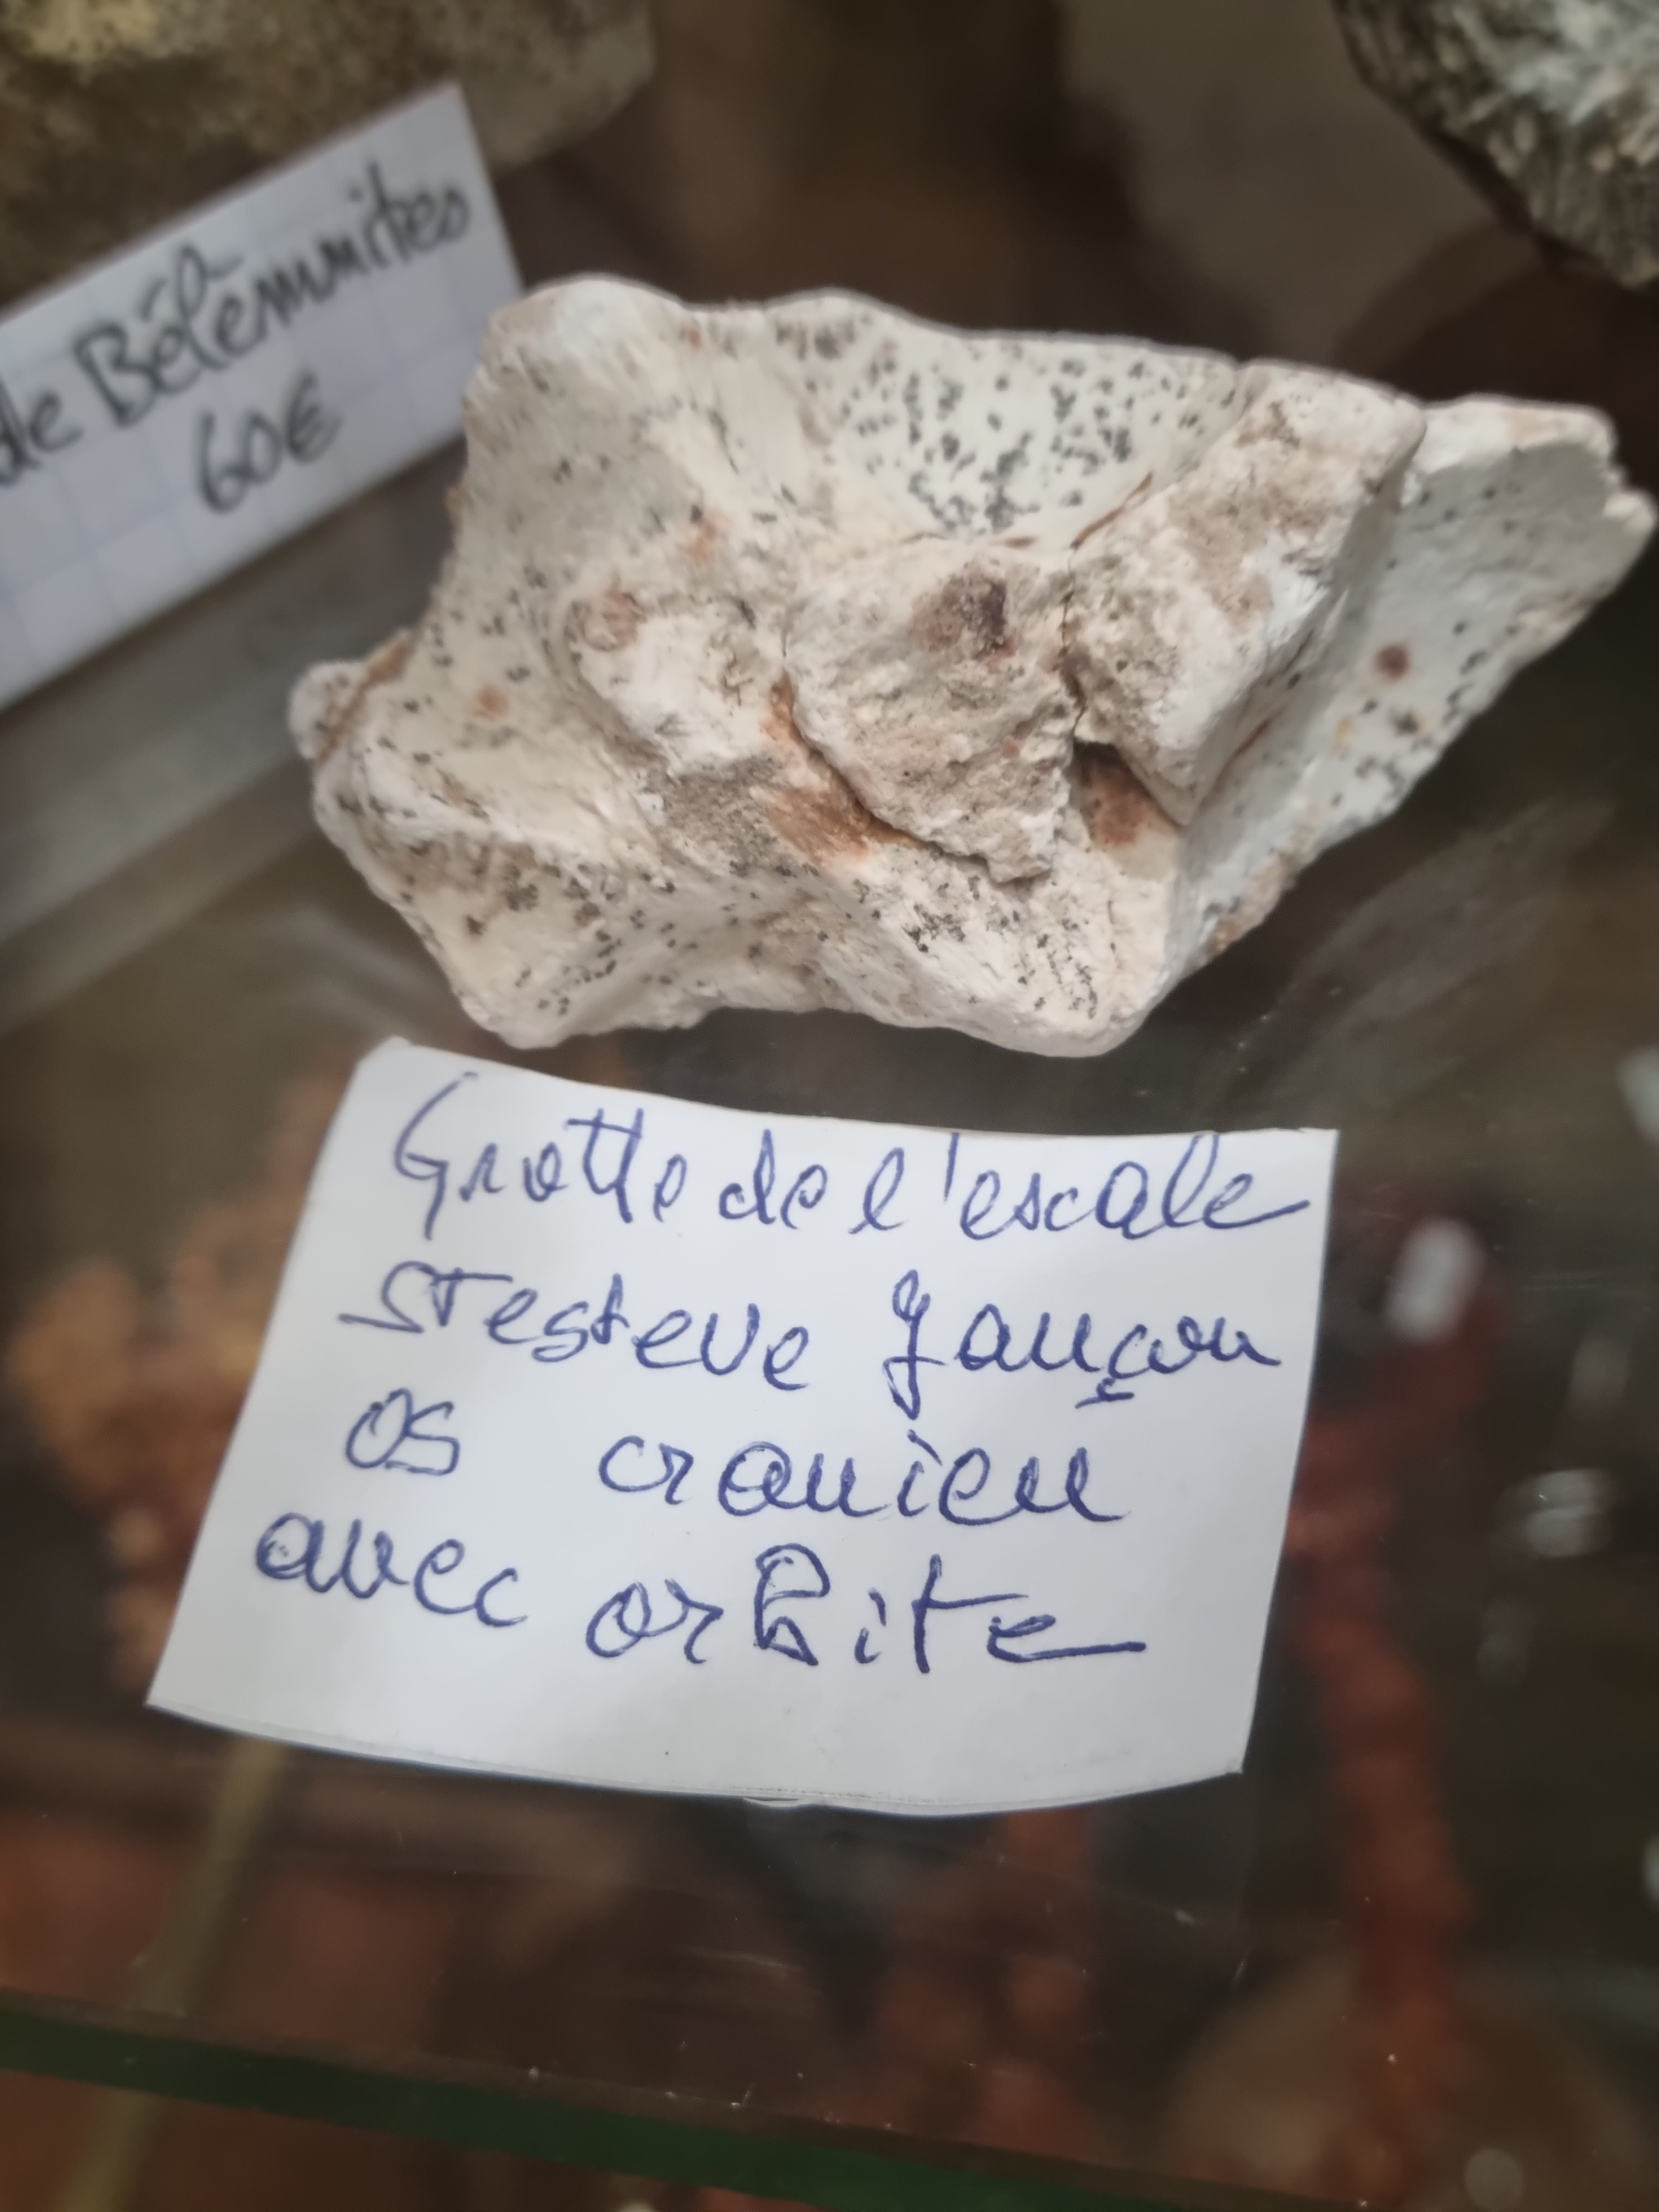 de Bélemnites
60€
Grotte de l'escale
St esteve Jançon
os cranien
avec orbite